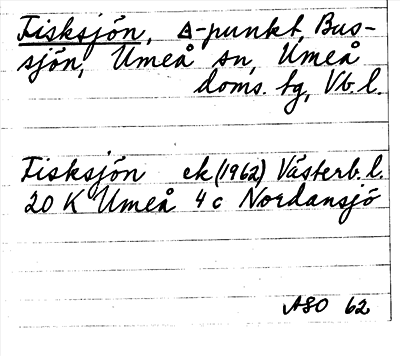 Fisksjön, Δ-punkt, Bus-
sjön, Umeå sn, Umeå
doms. tg, Vb. l.
Fisksjön ek (1962) Västerb. l.
20 K Umeå 4 c Nordansjö
ASO 62